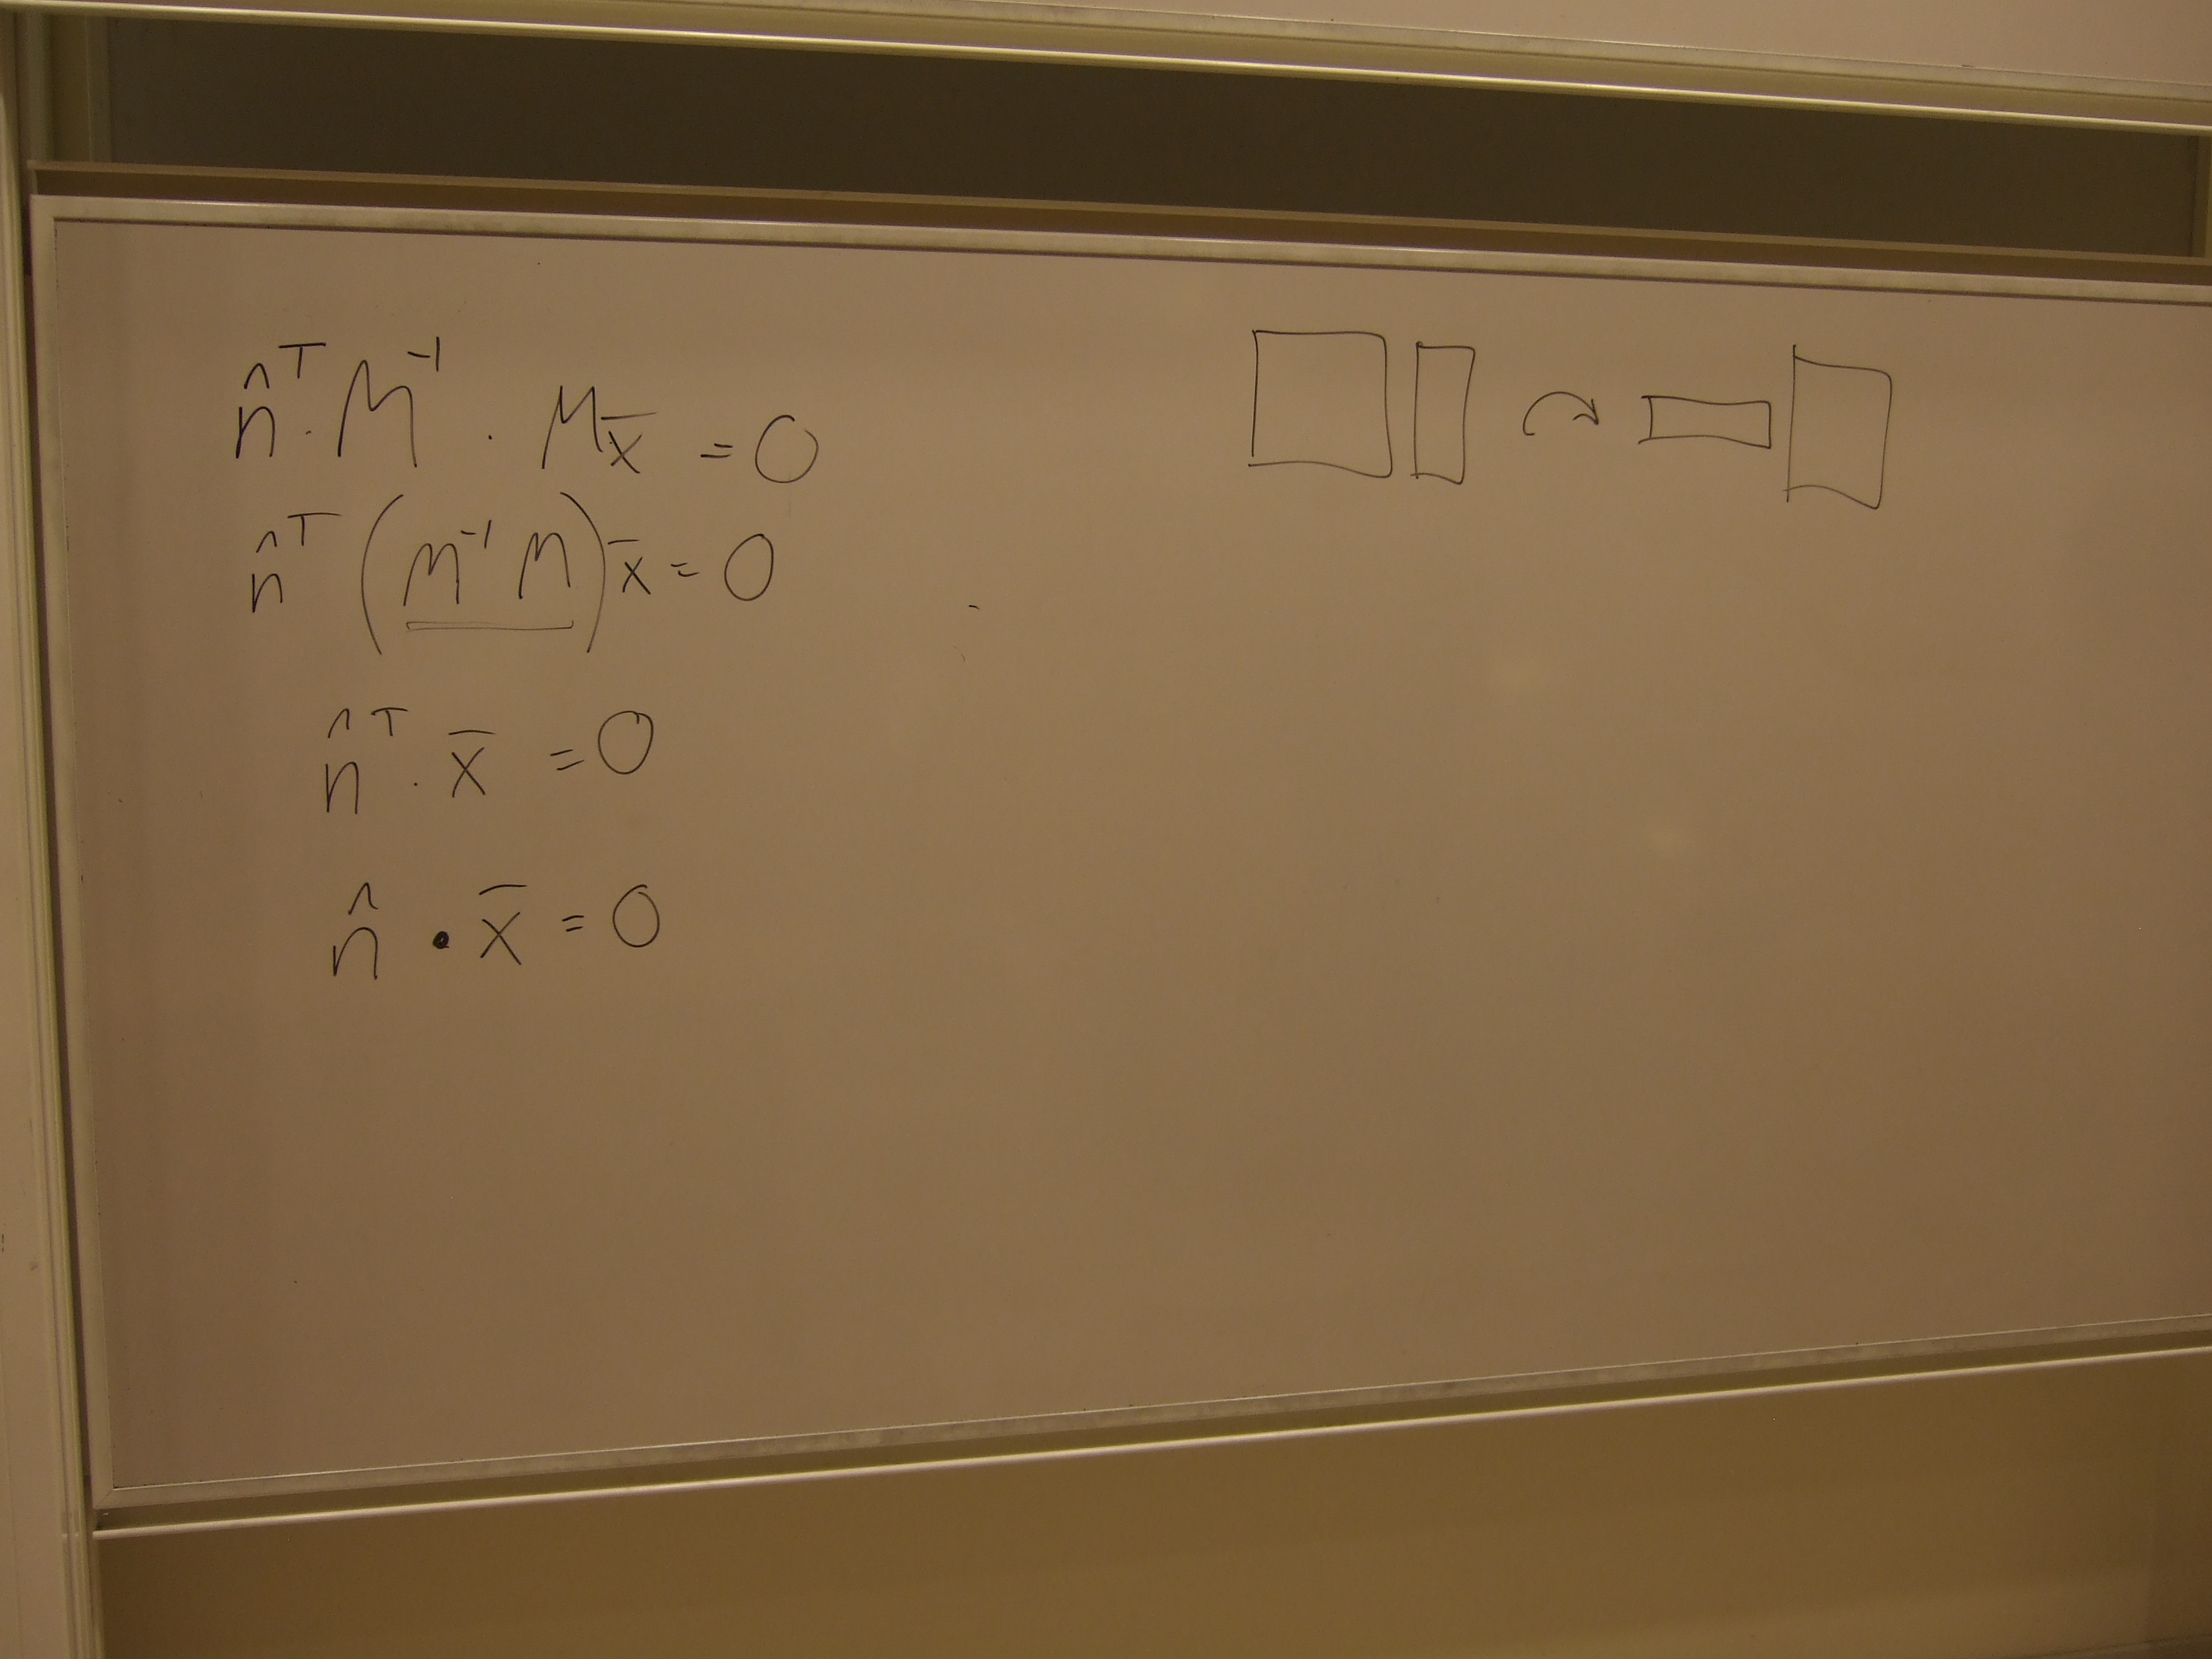 n̂ᵀ · M⁻¹ · Mx̄ = 0
n̂ᵀ (M⁻¹ M) x̄ = 0
n̂ᵀ · x̄ = 0
n̂ · x̄ = 0